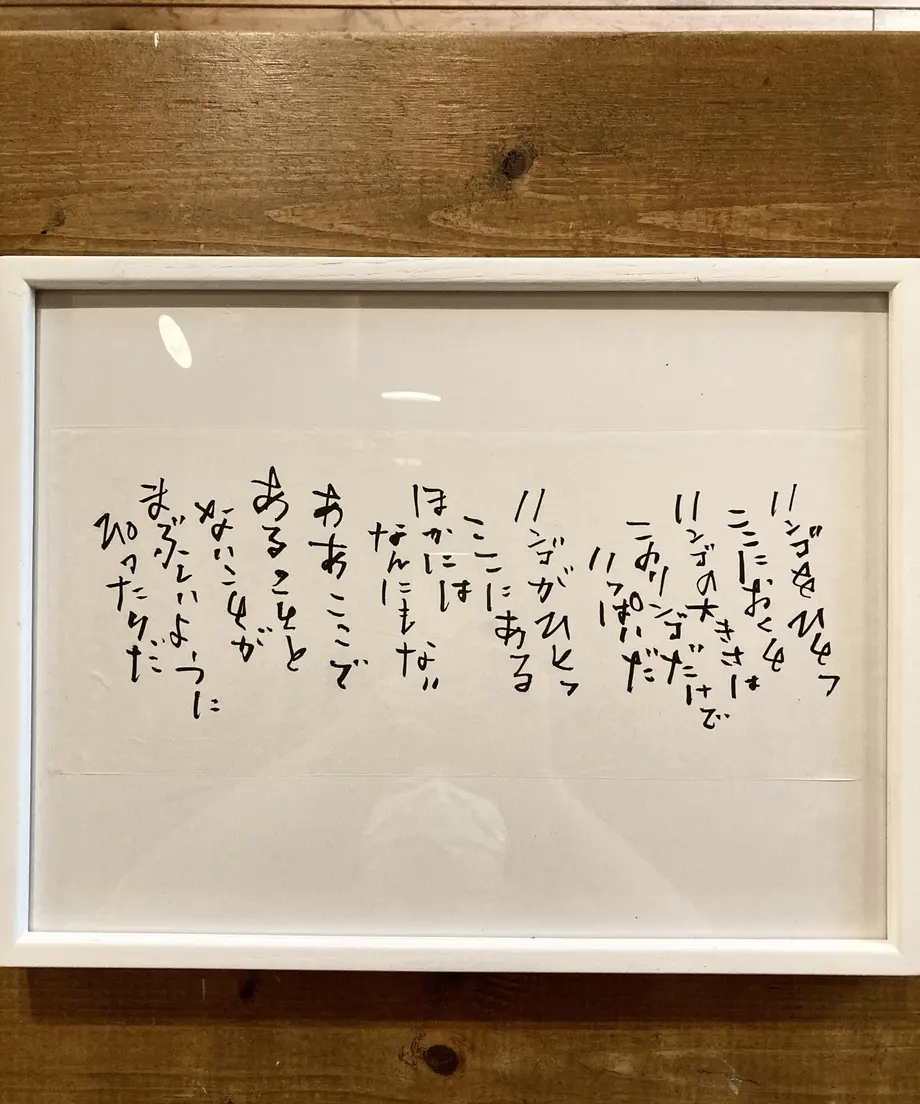 リンゴをひとつ
ここにおくと
リンゴの大きさは
このリンゴだけで
いっぱいだ
リンゴがひとつ
ここにある
ほかには
なんにもない
ああここで
あることと
ないことが
まぶしいように
ぴったりだ